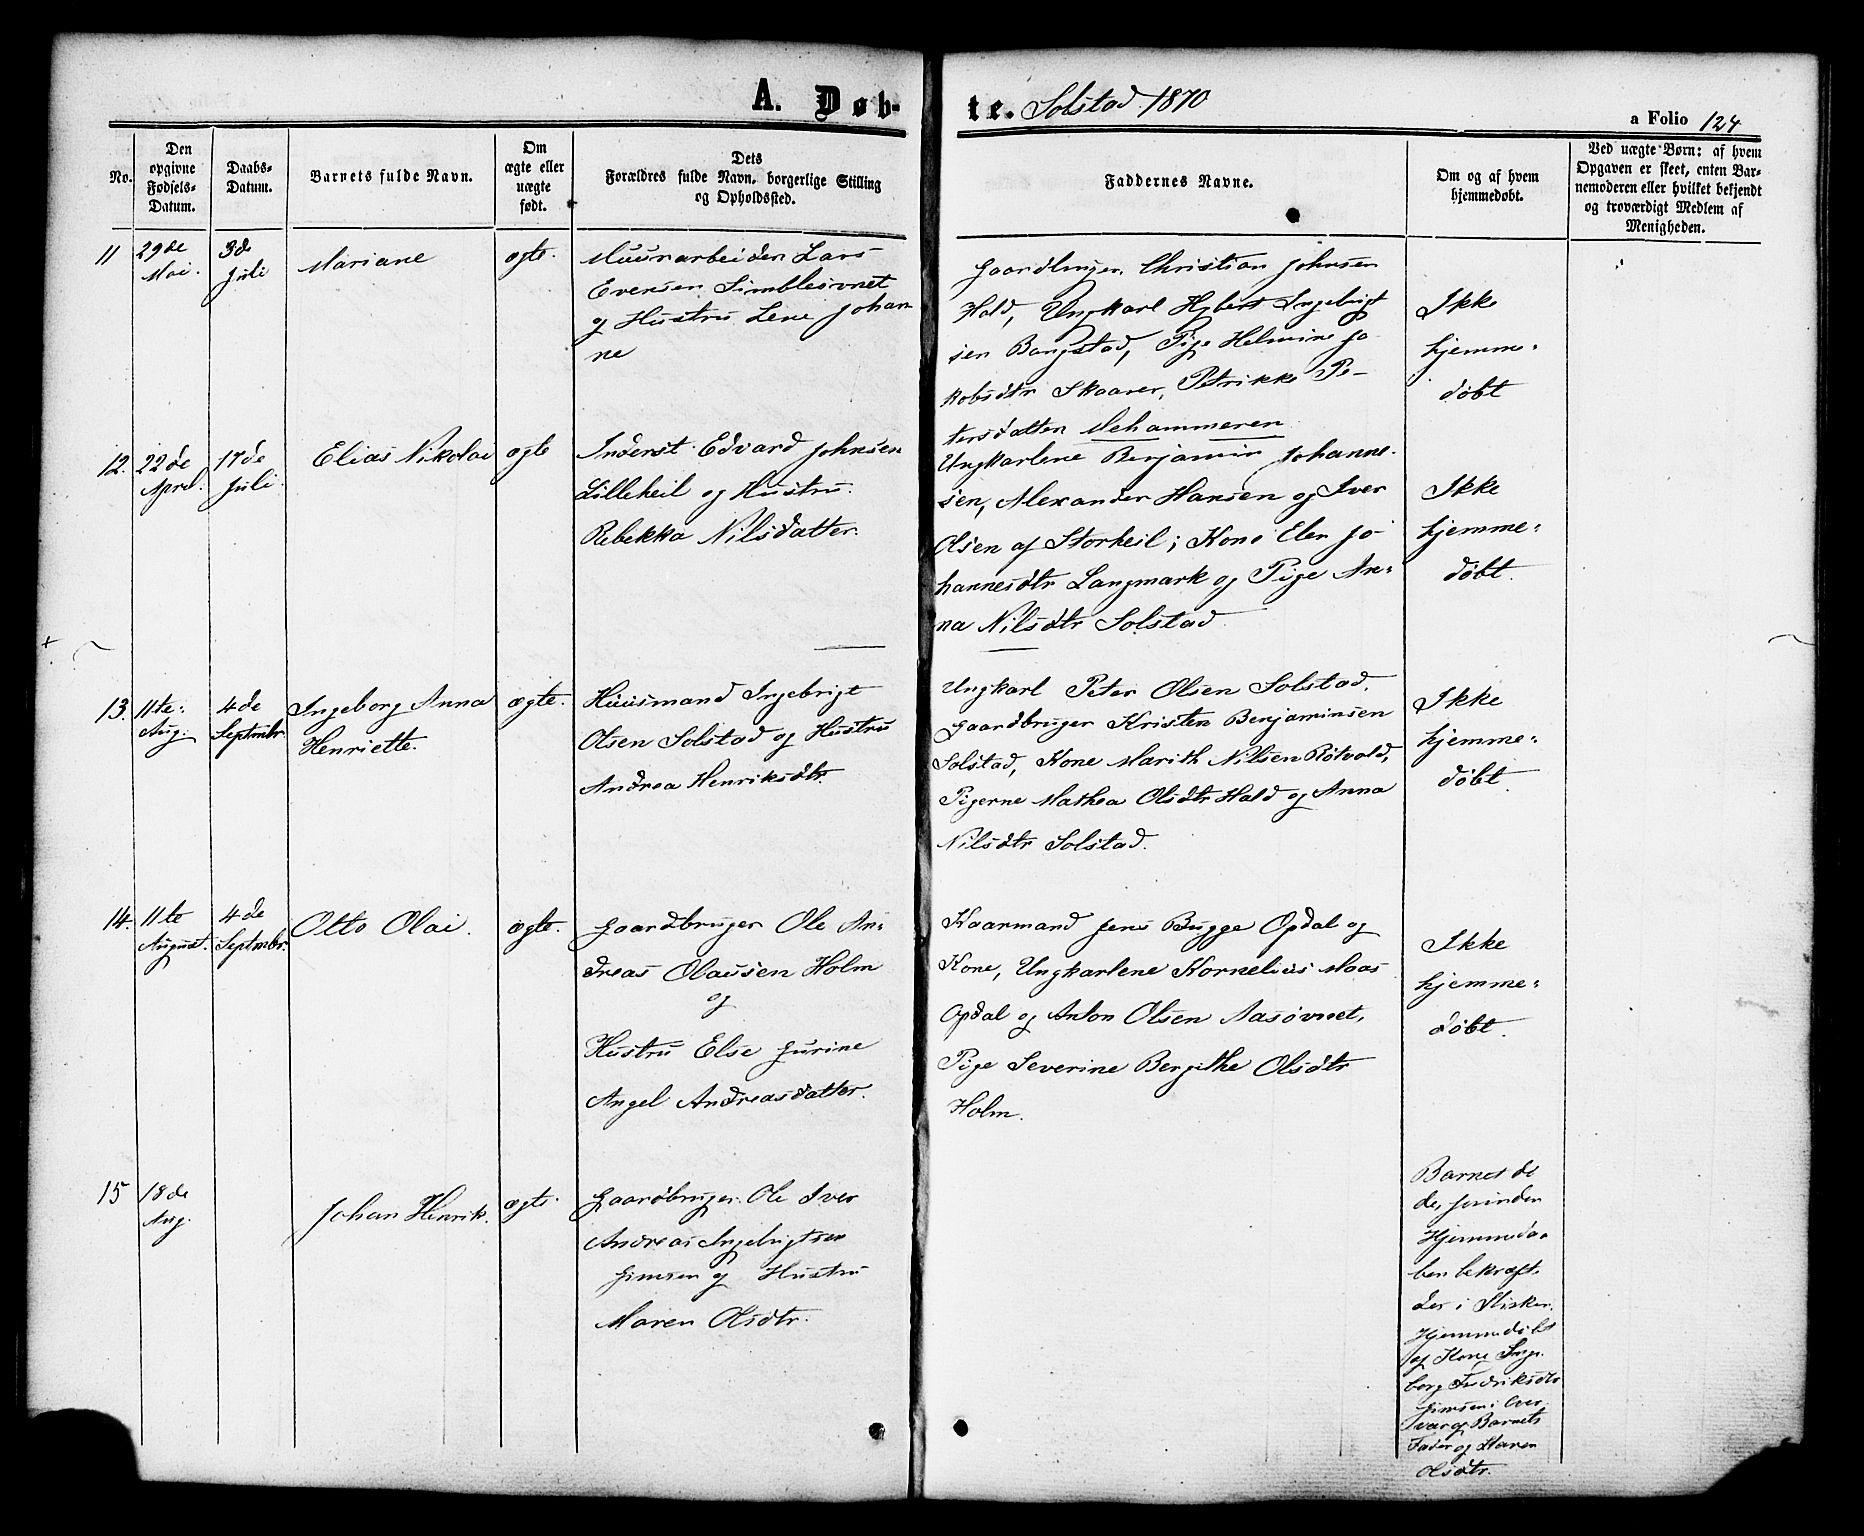 A. Døb-
te. Solstad 1870
a Folio 124
No.
Den opgivne Fødsels-Datum.
Daabs-Datum.
Barnets fulde Navn.
Om ægte eller uægte født.
Dets Forældres fulde Navn, borgerlige Stilling og Opholdssted.
Faddernes Navne.
Om og af hvem hjemmedøbt.
Ved uægte Børn: af hvem Opgaven er skeet, enten Barnemoderen eller hvilket bekjendt og troværdigt Medlem af Menigheden.
11
29de
Mai.
3de
Juli
Mariane
ægte.
Muurarbeider Lars
Eversen Simblesøvnet
og Hustru Lene Johan
ne
Gaardbruger Christian Johnsen
Hald, Ungkarl Hybert Ingebrigt
sen Bangstad, Pige Helmine Ja
kobsdtr Skaarer, Petrikke Pe-
tersdatter Mehammeren
Ikke
hjemme-
døbt
12.
22de
April.
17de
Juli.
Elias Nikolai
ægte
Inderst Edvard Johnsen
Lilleheil og Hustru
Rebekka Nilsdatter.
Ungkarlene Benjamin Johanne-
sen, Alexander Hansen og Iver
Olsen af Storheil; Kone Elen Jo-
hannesdtr Langmark og Pige An-
na Nilsdtr Solstad
Ikke
hjemme-
døbt.
13.
11te
Aug.
4de
Septmbr.
Ingeborg Anna
Henriette.
ægte.
Huusmand Ingebrigt
Olsen Solstad og Hustru
Andrea Henriksdtr.
Ungkarl Peter Olsen Solstad,
Gaardbruger Kristen Benjaminsen
Solstad, Kone Marith Nilsen Rötvold,
Pigerne Mathea Olsdtr Hald og Anna
Nilsdtr Solstad.
Ikke
hjemme-
døbt.
14.
11te
August.
4de
Septmbr.
Otto Olai.
ægte.
Gaardbruger Ole An-
dreas Olausen Holm
og
Hustru Else Jurine
Angel Andreasdatter.
Kaarmand Jens Bugge Opdal og
Kone, Ungkarlene Kornelius Moas
Opdal og Anton Olsen Aasøvnet,
Pige Severine Bergithe Olsdtr
Holm.
Ikke
hjemme-
døbt.
15
18de
Aug.
Johan Henrik.
ægte.
Gaardbruger Ole Iver
Andreas Ingebrigtsen
Simsen og Hustru
Maren Olsdtr.
Barnet dø
de, førinden
Hjemmedaa
ben bekræft
der i Kirken.
Hjemmedøbt
af Kone Inge
borg Fredriksdtr
Simsen i Over
vær af Barnets
Fader og Maren
Olsdtr.